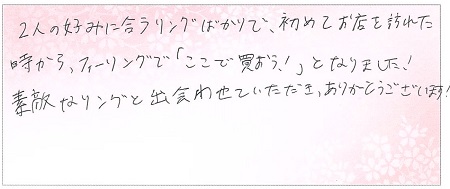 2人の好みに合うリングばかりで、初めてお店を訪れた
時から、フィーリングで「ここで買おう！」となりました！
素敵なリングと出会わせていただき、ありがとうございます！